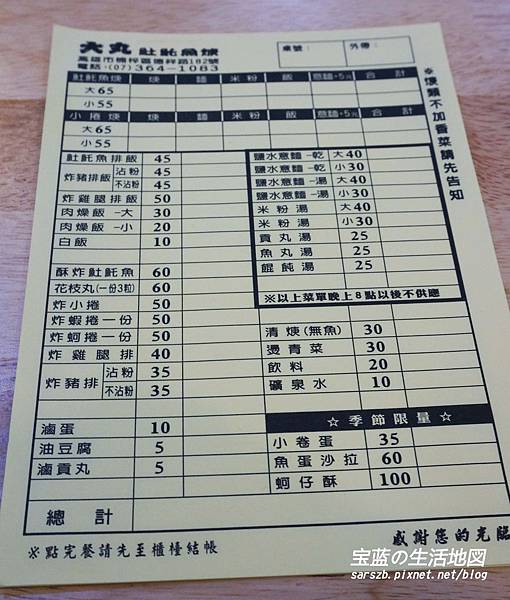 大丸 𩵚魠魚焿
高雄市楠梓區德祥路182號
電話:(07)364-1083
桌號：
外帶：
※焿類不加香菜請先告知
𩵚魠魚焿 焿 麵 米粉 飯 意麵+5元 合計
大65
小55
小捲焿 焿 麵 米粉 飯 意麵+5元 合計
大65
小55
𩵚魠魚排飯 45
炸豬排飯 沾粉 45
不沾粉 45
炸雞腿排飯 50
肉燥飯-大 30
肉燥飯-小 20
白飯 10
酥炸𩵚魠魚 60
花枝丸(一份3粒) 60
炸小捲 50
炸蝦捲一份 50
炸蚵捲一份 50
炸雞腿排 40
炸豬排 沾粉 35
不沾粉 35
滷蛋 10
油豆腐 5
滷貢丸 5
鹽水意麵-乾 大40
鹽水意麵-乾 小30
鹽水意麵-湯 大40
鹽水意麵-湯 小30
米粉湯 大40
米粉湯 小30
貢丸湯 25
魚丸湯 25
餛飩湯 25
※以上菜單晚上8點以後不供應
清焿(無魚) 30
燙青菜 30
飲料 20
礦泉水 10
☆季節限量☆
小卷蛋 35
魚蛋沙拉 60
蚵仔酥 100
總計
※點完餐請先至櫃檯結帳
感謝您的光臨
宝蓝の生活地図
sarszb.pixnet.net/blog